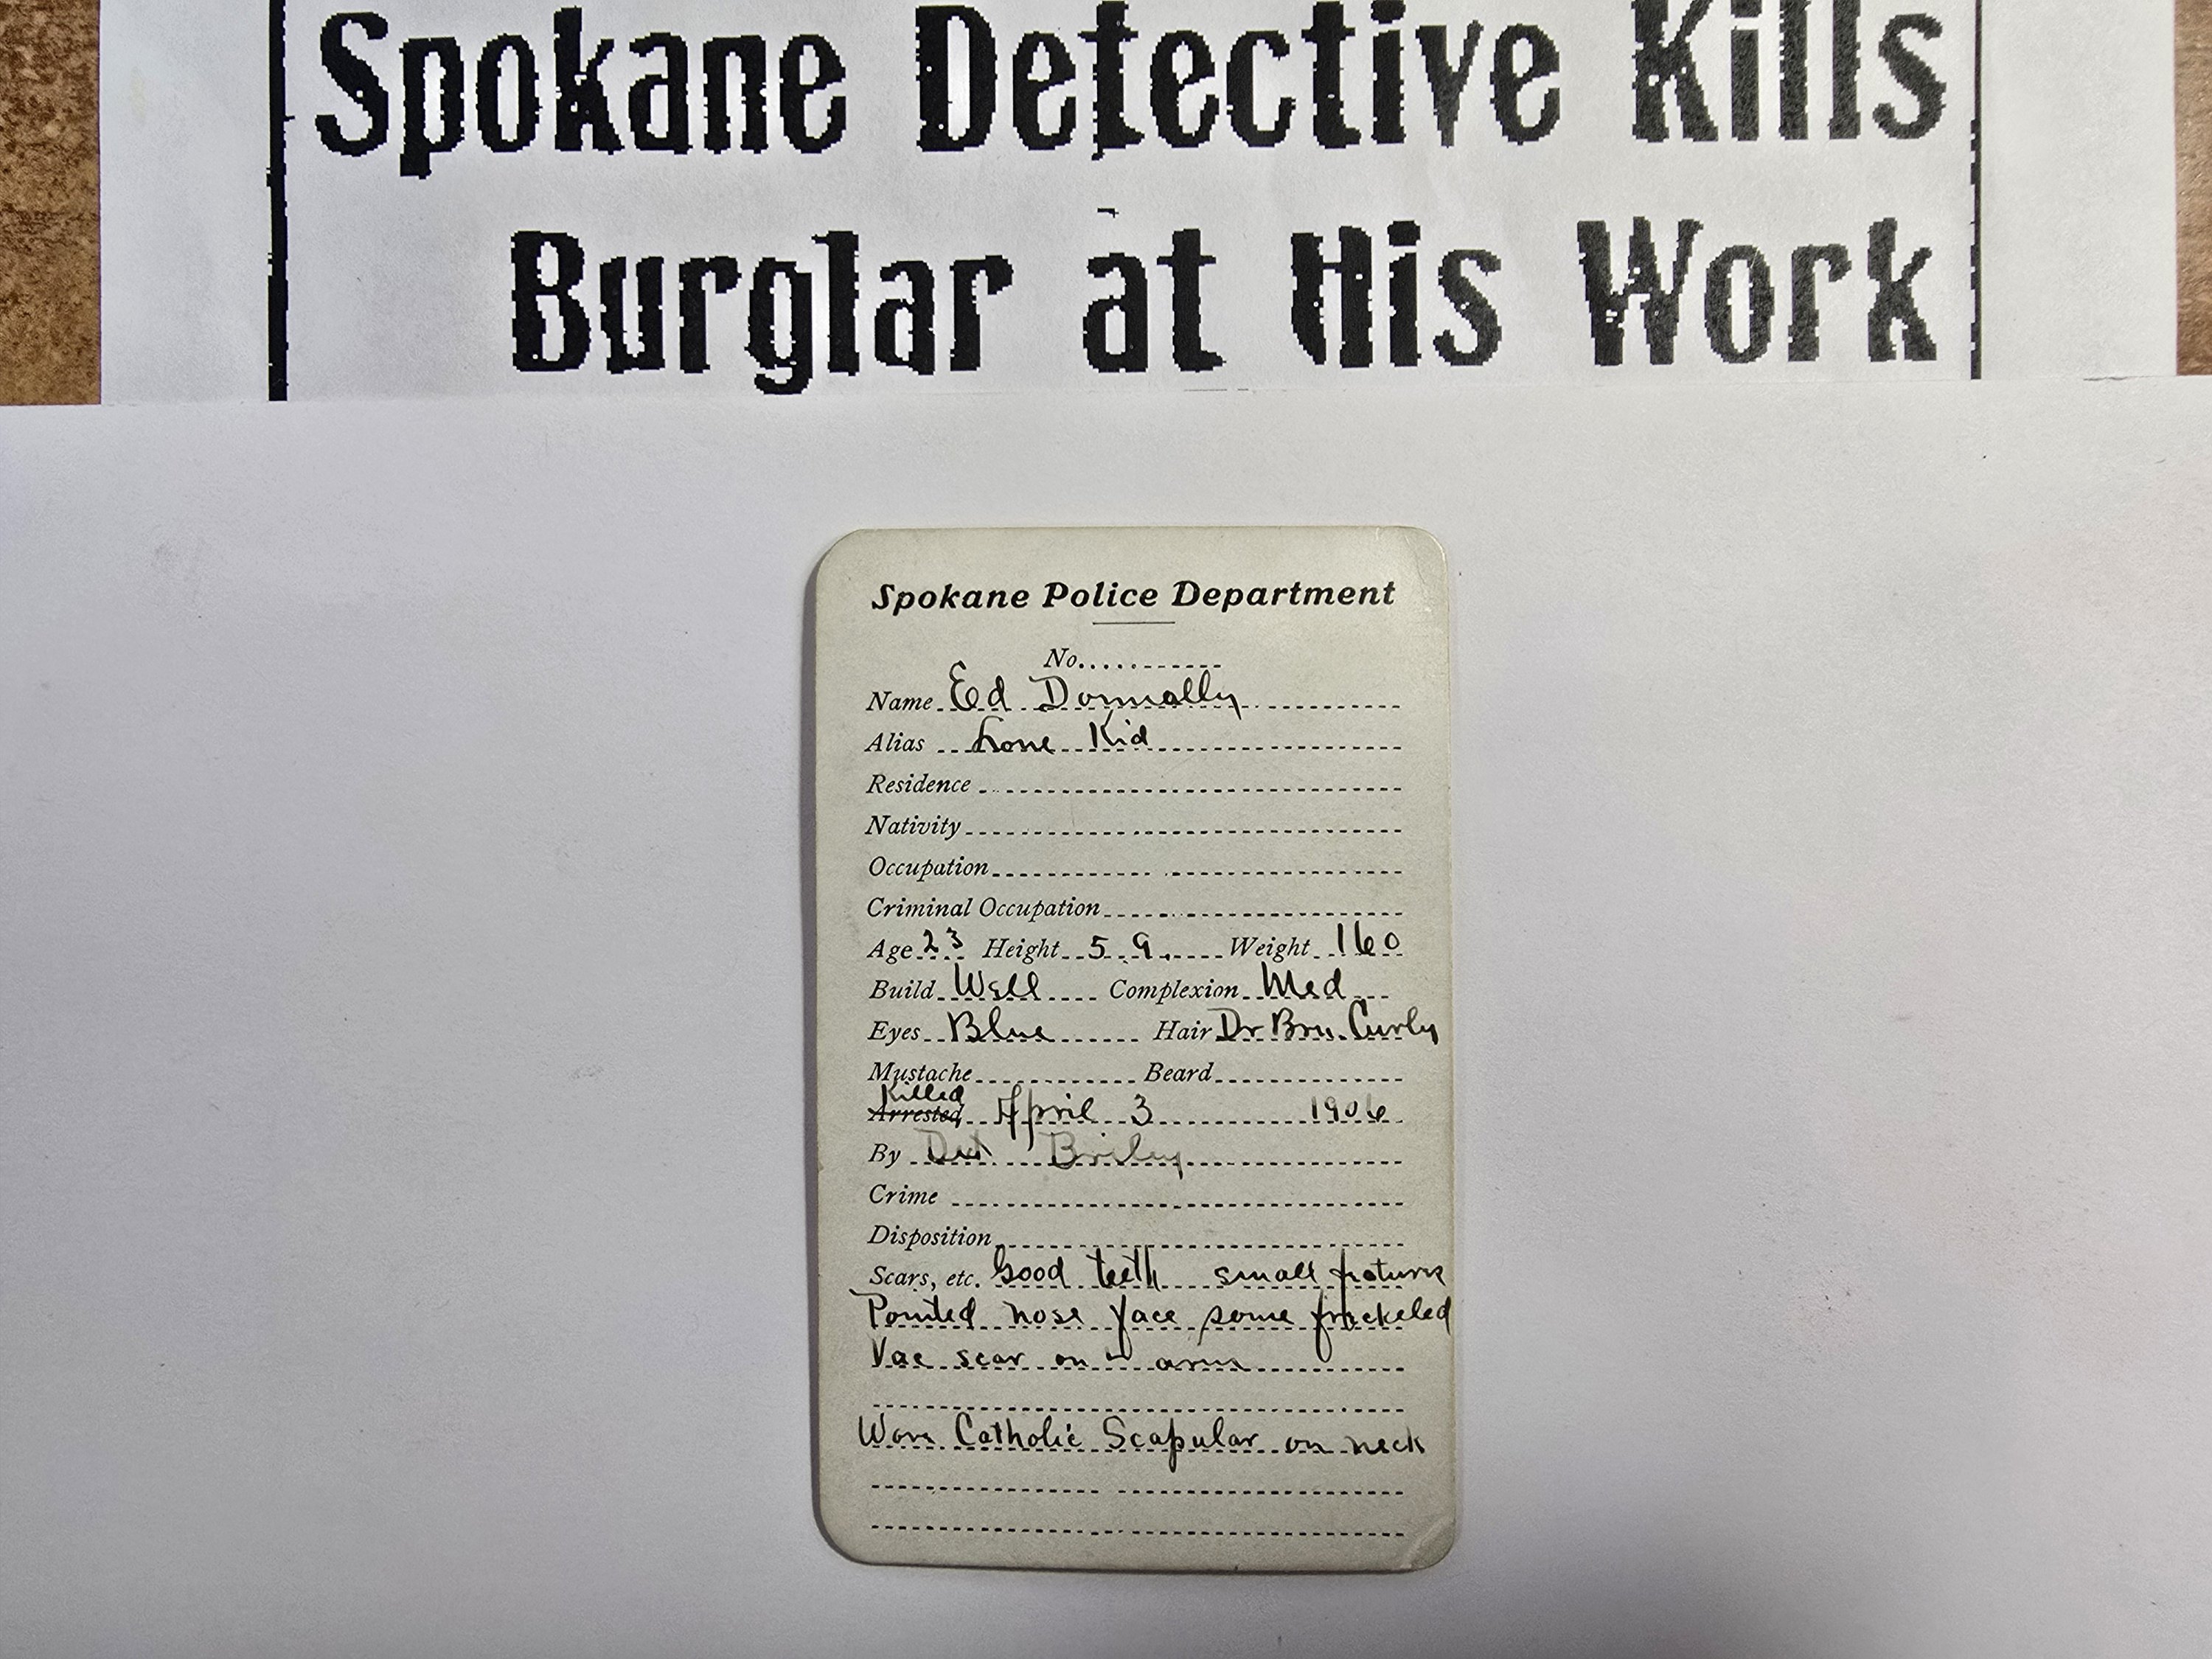 Spokane Detective Kills
Burglar at His Work
Spokane Police Department
No.
Name Ed Donnally
Alias Lone Kid
Residence
Nativity
Occupation
Criminal Occupation
Age 23 Height 5 9 Weight 160
Build Well Complexion Med
Eyes Blue Hair Dr Brn. Curly
Mustache Beard
Killed
Arrested April 3 1906
By Det Briley
Crime
Disposition
Scars, etc. Good teeth small
Pointed nose face some freckeled
Vac scar on arm
Wore Catholic Scapular on neck